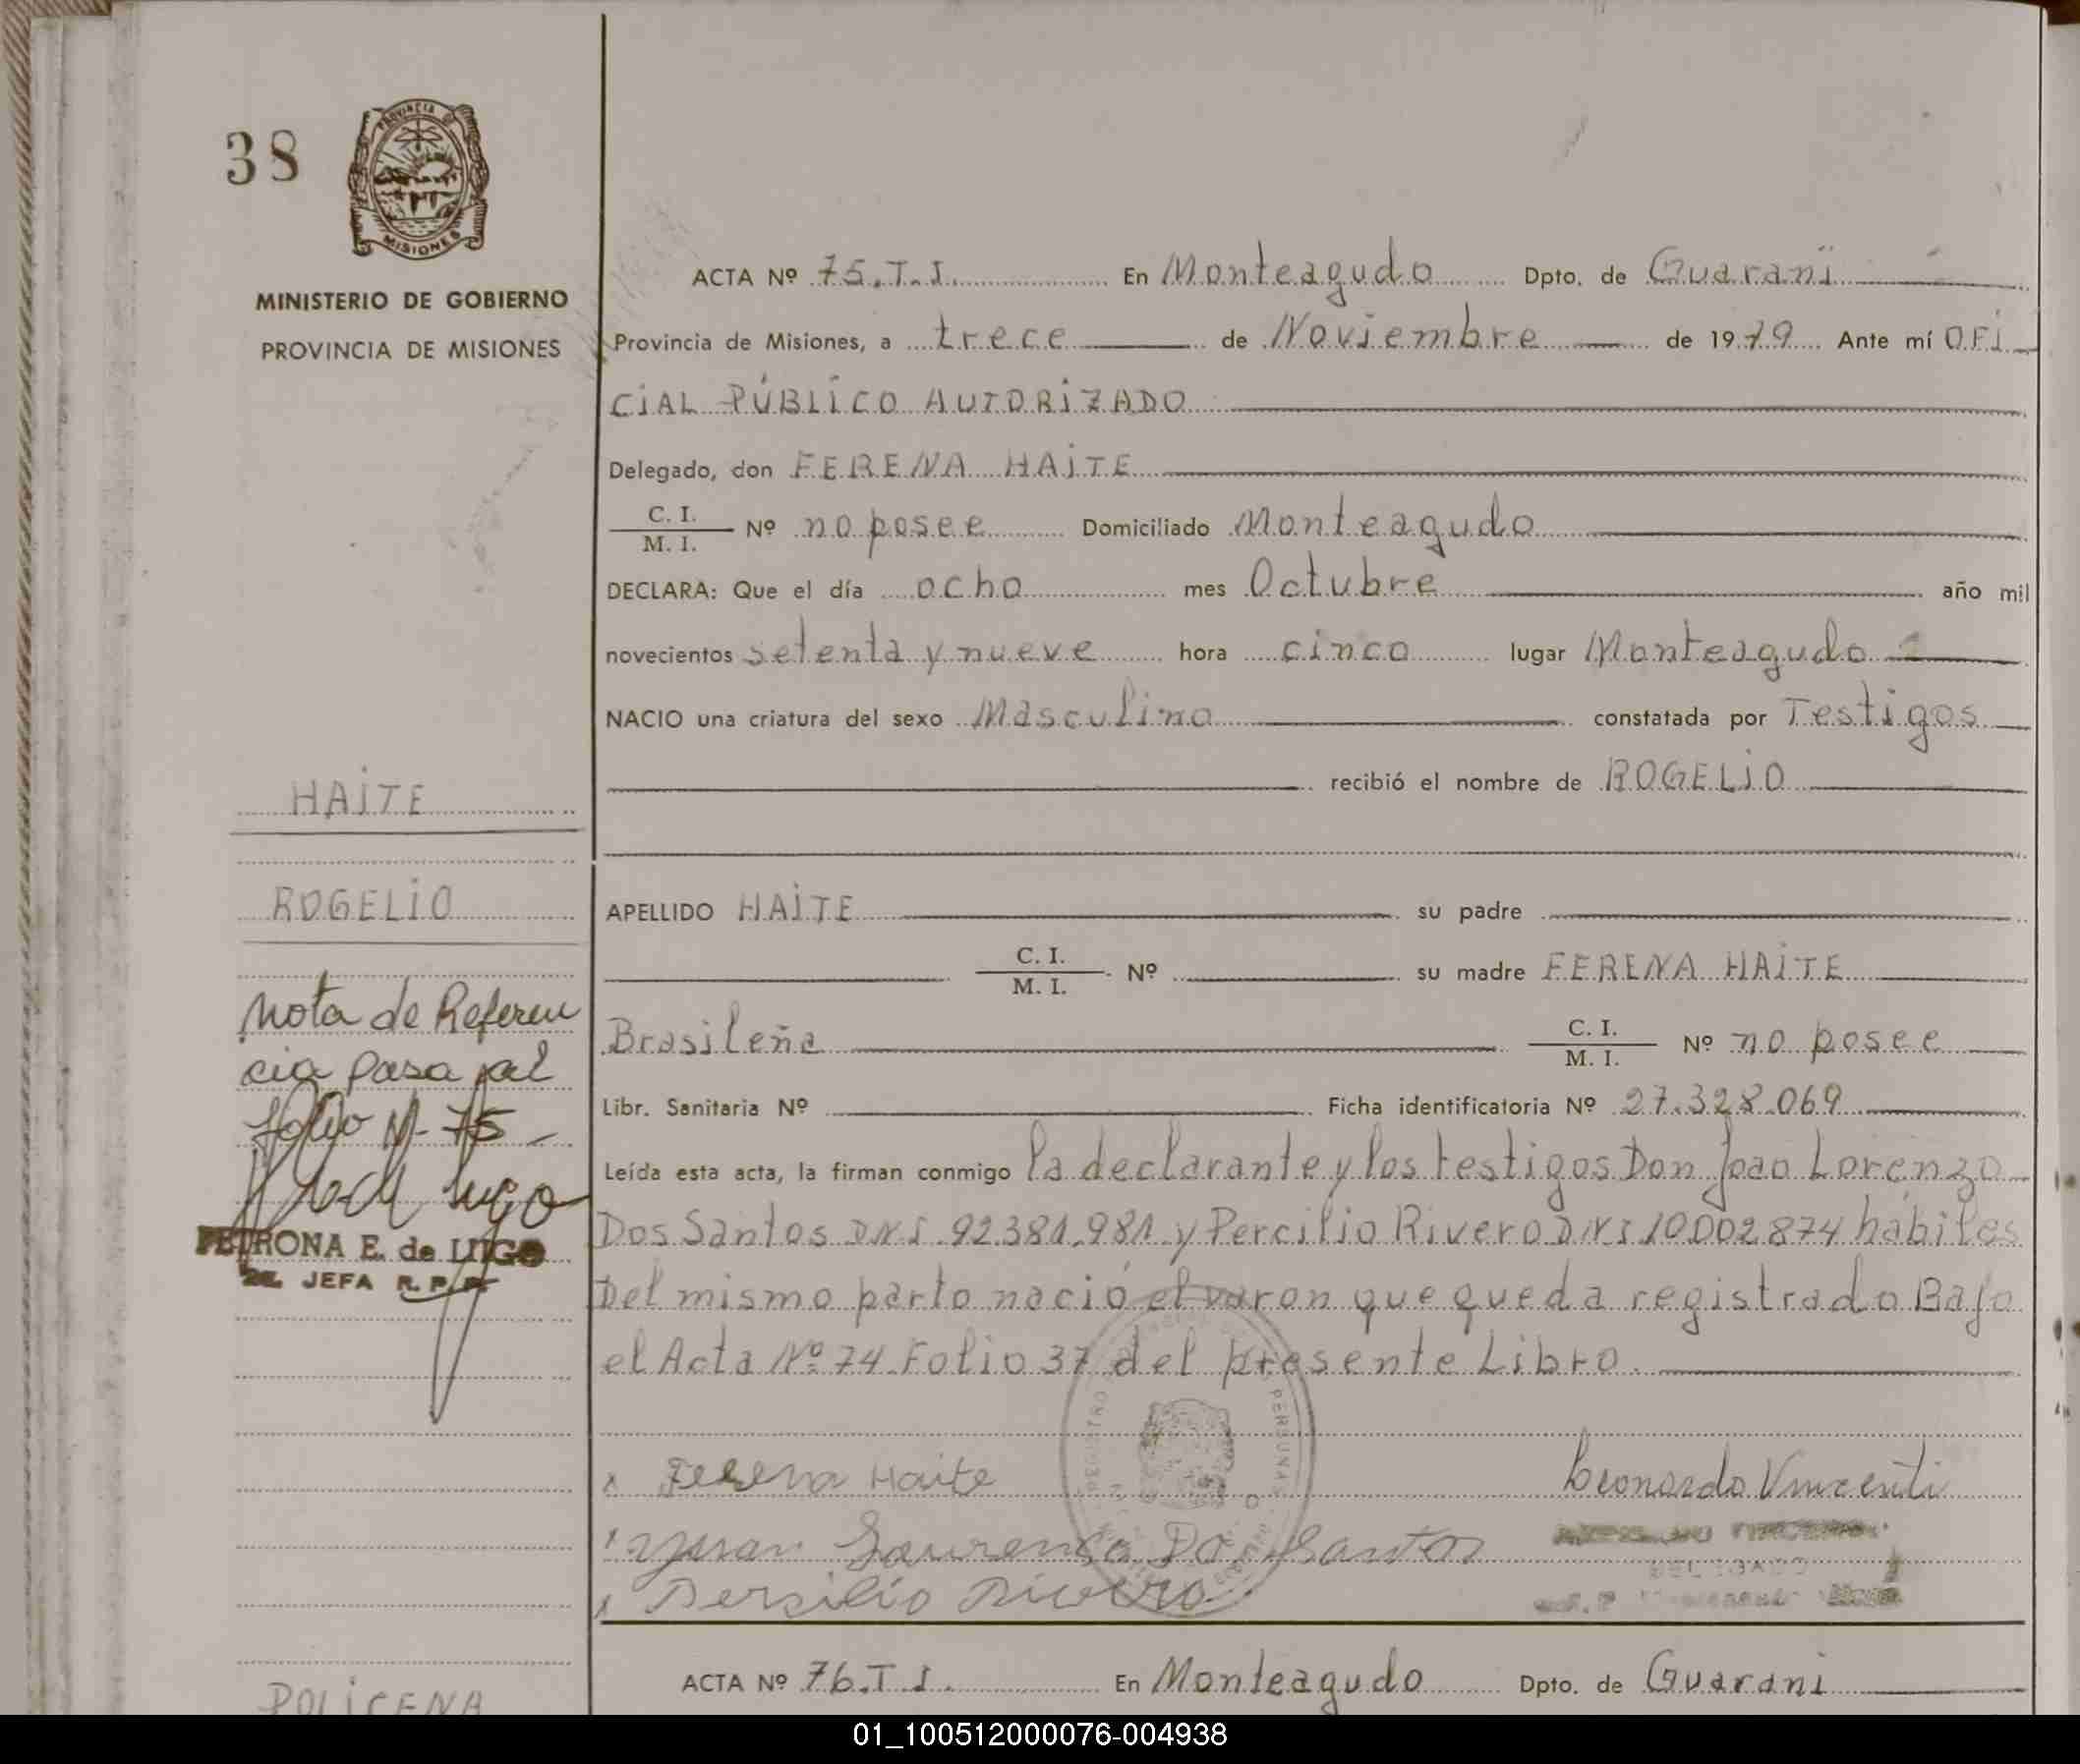 38
PROVINCIA DE
MISIONES
MINISTERIO DE GOBIERNO
PROVINCIA DE MISIONES
ACTA Nº 75.T.I. En Monteagudo Dpto. de Guaraní
Provincia de Misiones, a trece de Noviembre de 1979 Ante mí OFI
CIAL PÚBLICO AUTORIZADO
Delegado, don FERENA HAITE
C. I.
M. I. Nº no posee Domiciliado Monteagudo
DECLARA: Que el día ocho mes Octubre año mil
novecientos setenta y nueve hora cinco lugar Monteagudo
NACIO una criatura del sexo Masculino constatada por Testigos
recibió el nombre de ROGELIO
HAITE
ROGELIO
APELLIDO HAITE su padre
C. I.
M. I. Nº su madre FERENA HAITE
Nota de Referen
cia Pasa al
folio N- 75 -
Brasileña C. I.
M. I. Nº no posee
Libr. Sanitaria Nº Ficha identificatoria Nº 27.328.069
Leída esta acta, la firman conmigo la declarante y los testigos Don Joao Lorenzo
Dos Santos DNI. 92.381.981 y Percilio Rivero DNI 10.002874 hábiles
PETRONA E. de LUGO
JEFA R. P. P.
Del mismo parto nació el varon que queda registrado Bajo
el Acta Nº 74 Folio 37 del presente Libro.
x Ferena Haite
Leonardo Vincenti
x Yuran Laurenso Dos Santos
DELEGADO
x Persilio Rivero
ACTA Nº 76.T.I. En Monteagudo Dpto. de Guarani
POLICENA
01_100512000076-004938